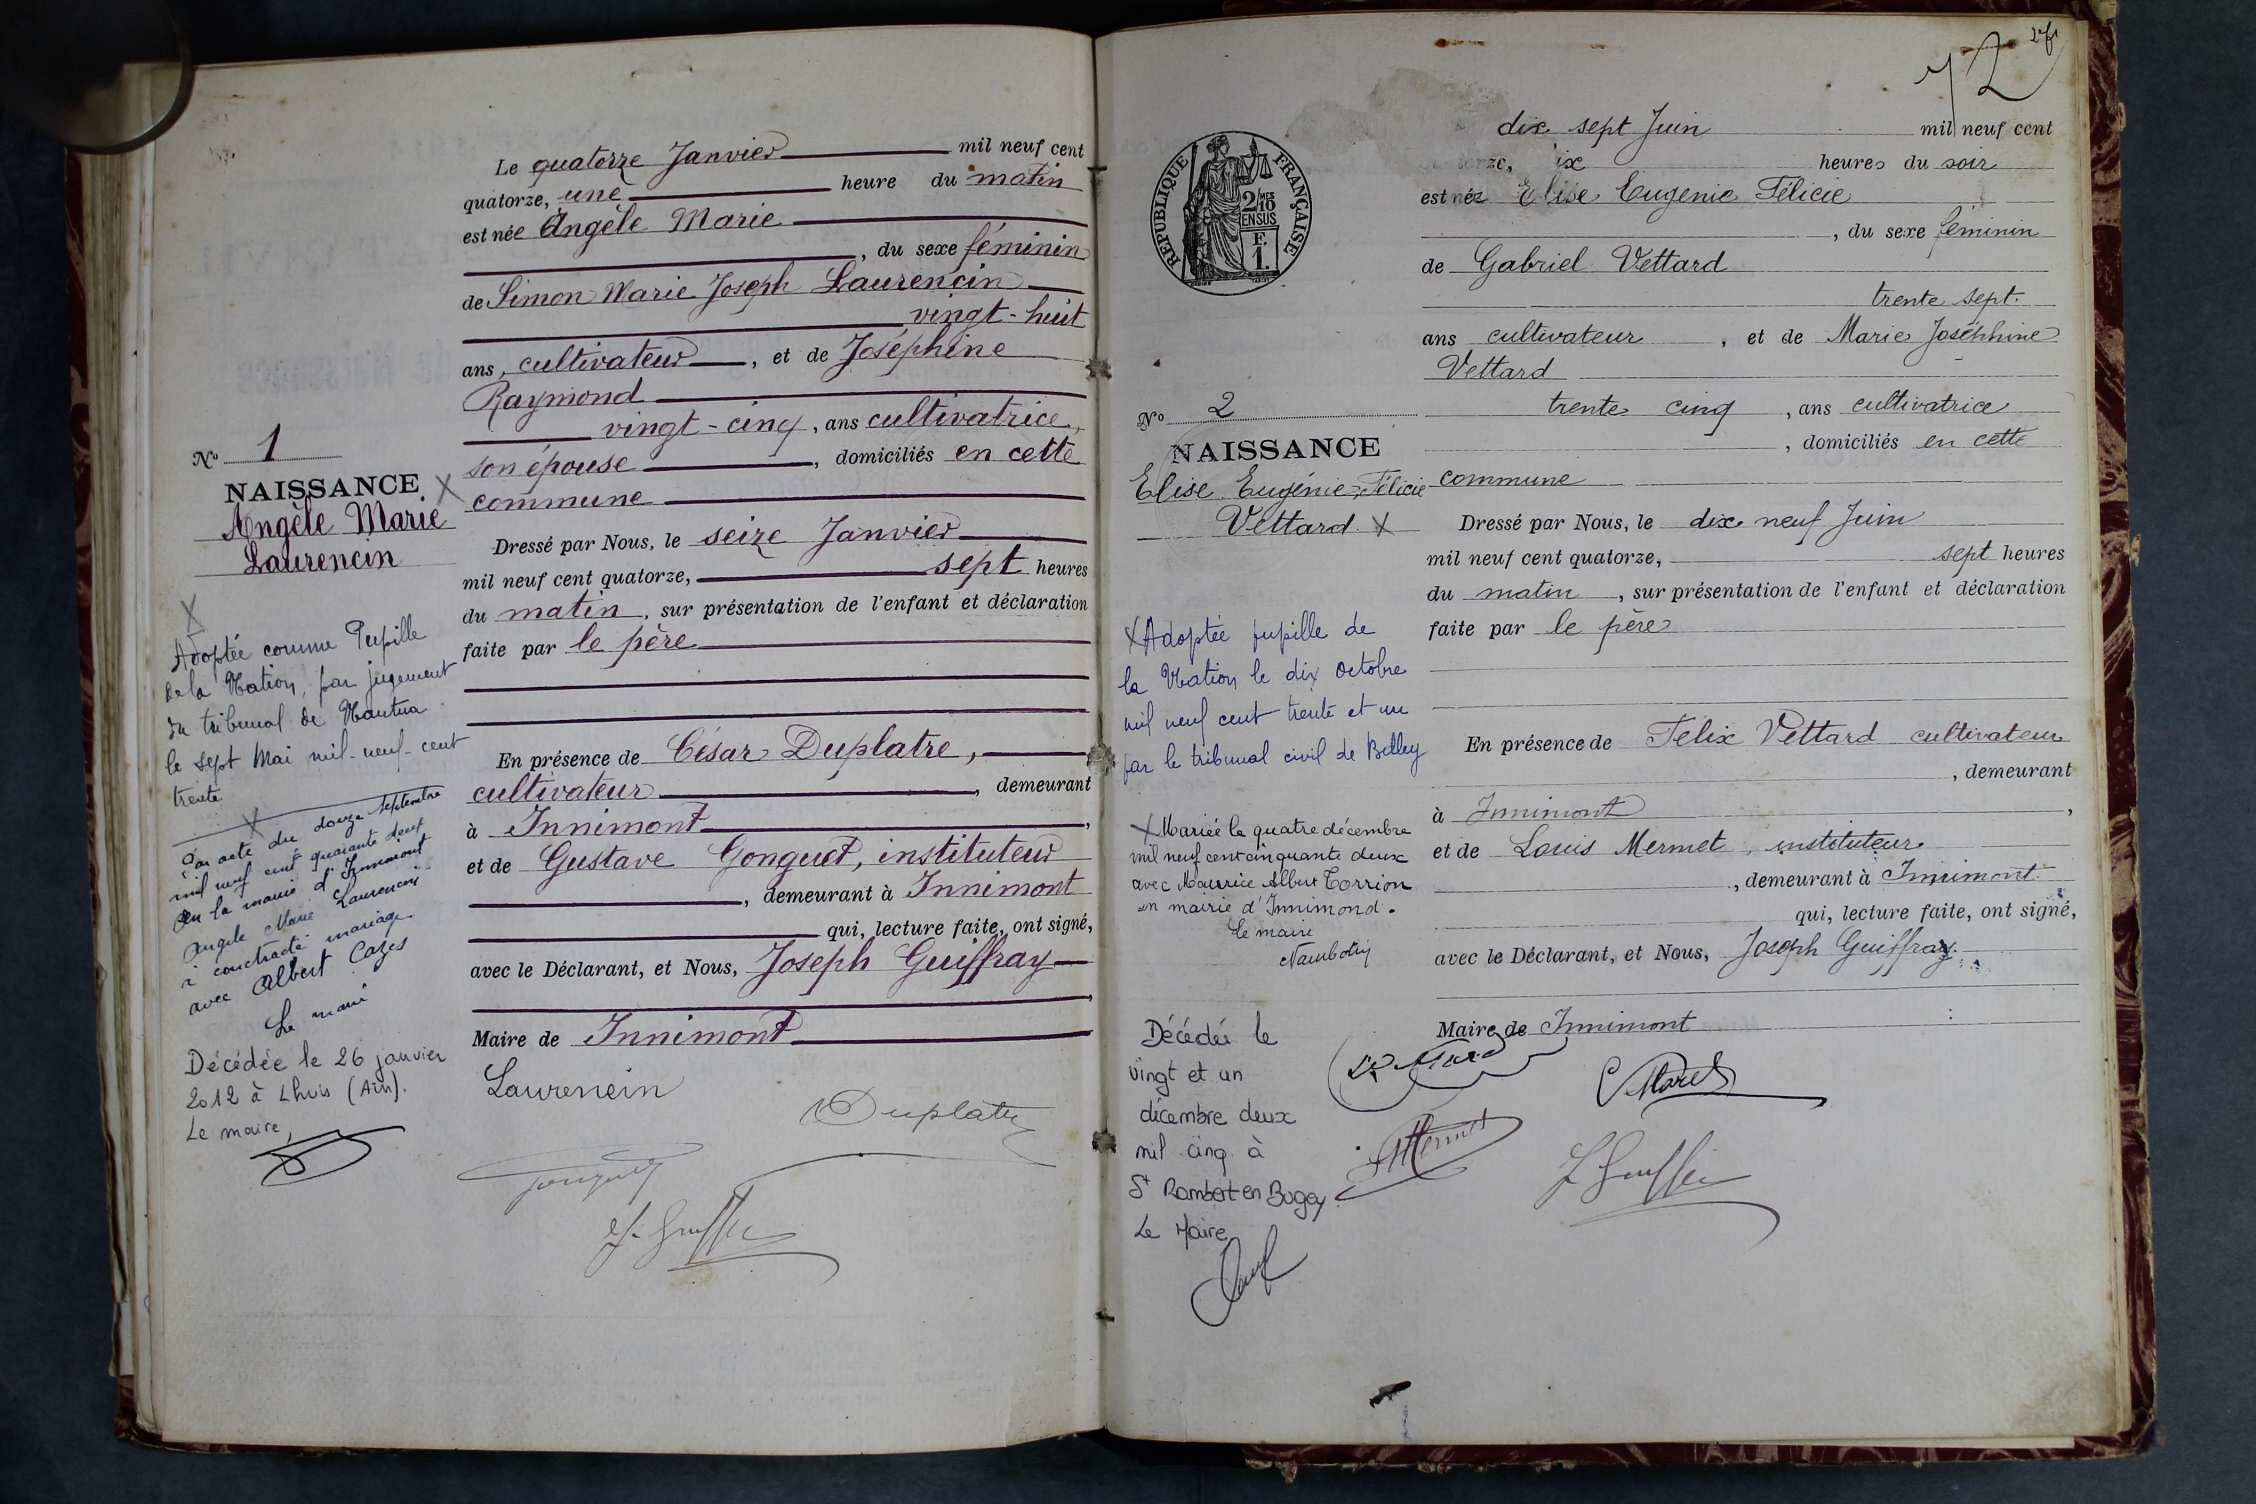 Le quatorze Janvier mil neuf cent
quatorze, une heure du matin
est née Angèle Marie
, du sexe féminin
de Simon Marie Joseph Laurencin
vingt-huit
ans, cultivateur, et de Joséphine
Raymond
vingt-cinq, ans cultivatrice,
son épouse, domiciliés en cette
commune
Dressé par Nous, le seize Janvier
mil neuf cent quatorze, sept heures
du matin, sur présentation de l'enfant et déclaration
faite par le père
En présence de César Duplatre,
cultivateur, demeurant
à Innimont,
et de Gustave Gonguet, instituteur
, demeurant à Innimont
qui, lecture faite, ont signé,
avec le Déclarant, et Nous, Joseph Guiffray
,
Maire de Innimont
Laurencin
Duplatre
N° 1
NAISSANCE X
Angèle Marie
Laurencin
X
Adoptée comme Pupille
de la Nation, par jugement
du tribunal de Nantua
le sept Mai mil-neuf-cent
trente
X
Par acte du douze septembre
mil neuf cent quarante deux
en la mairie d'Innimont
Angèle Marie Laurencin
a contracté mariage
avec Albert Cazes
Le maire
Décédée le 26 janvier
2012 à Lhuis (Ain).
Le maire,
72
REPUBLIQUE FRANÇAISE
2/10 MES
EN SUS
F.
1.
dix sept Juin mil neuf cent
heures du soir
est née Elise Eugenie Félicie
, du sexe féminin
de Gabriel Vettard
trente sept.
ans cultivateur, et de Marie Joséphine
Vettard
trente cinq, ans cultivatrice
, domiciliés en cette
commune
Dressé par Nous, le dix neuf Juin
mil neuf cent quatorze, sept heures
du matin, sur présentation de l'enfant et déclaration
faite par le père
En présence de Felix Vettard cultivateur
, demeurant
à Innimont,
et de Louis Mermet, instituteur
, demeurant à Innimont
qui, lecture faite, ont signé,
avec le Déclarant, et Nous, Joseph Guiffray
Maire de Innimont
N° 2
NAISSANCE
Elise Eugénie Félicie
Vettard X
X Adoptée pupille de
la Nation le dix octobre
mil neuf cent trente et un
par le tribunal civil de Belley
X Mariée le quatre décembre
mil neuf cent cinquante deux
avec Maurice Albert Torrion
en mairie d'Innimond.
Le maire
Décédée le
vingt et un
décembre deux
mil cinq à
St Rambert en Bugey
Le Maire